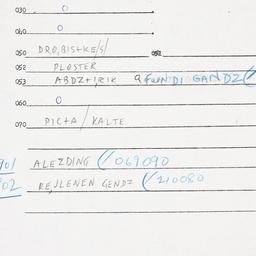 030 0
040 0
050 DRO,BIS+KE/S/ 051
052 PLOSTER
053 ABDZ+1,RIK a FUNDI GANDZ (/
060 0
070 PIC+A / KALTE
901 ALEZDING (/ 069090
902 REJLENEN GENDZ (/ 210080